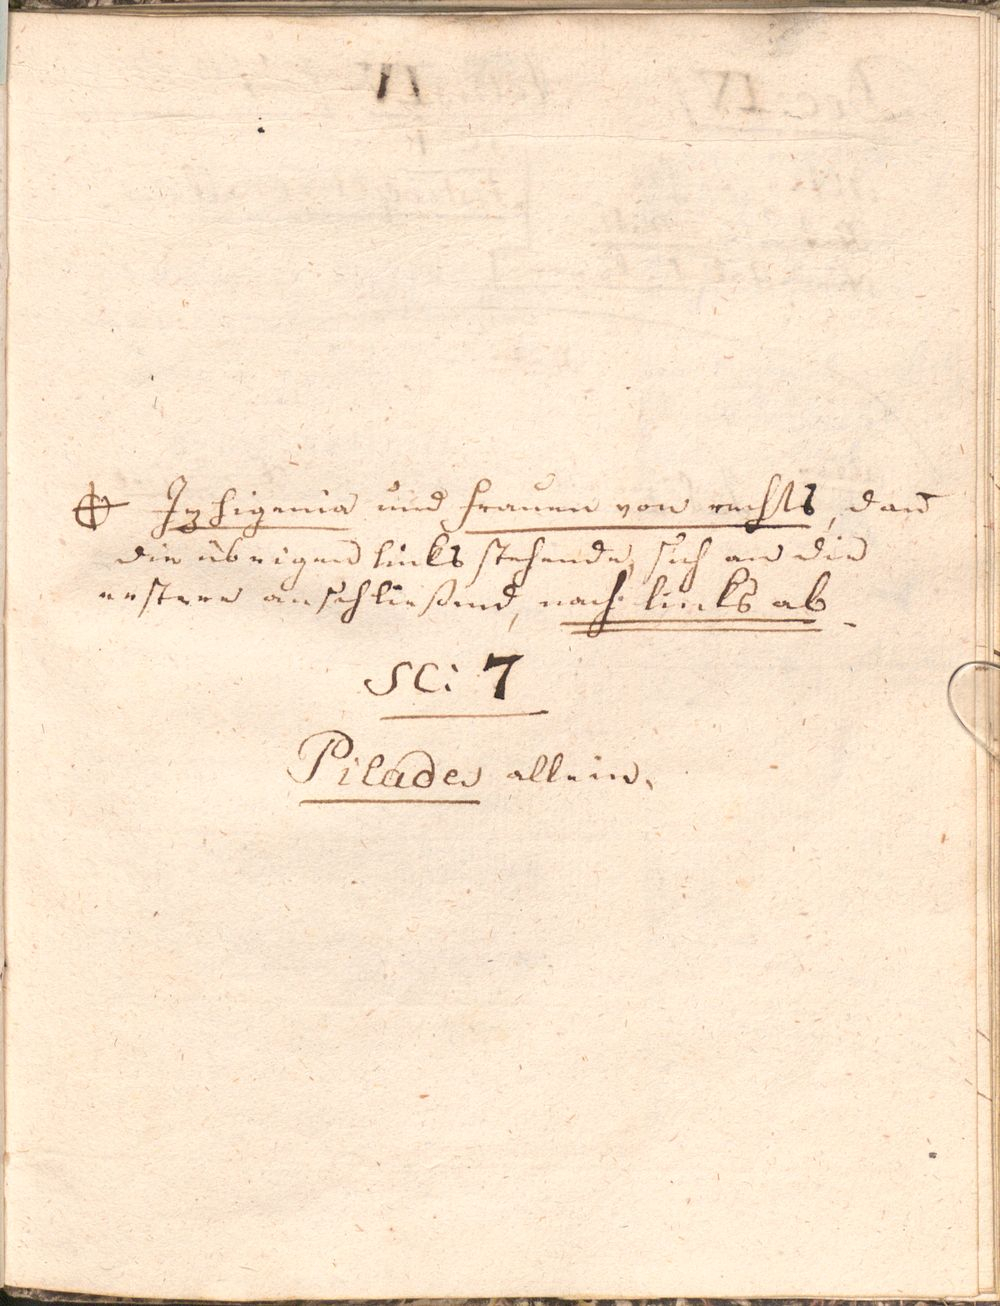 Iphigenia und Frauen von rechts, dan̄
die übrigen links stehende, sich an die
erstere anschließend, nach links ab
Sc: 7
Pilades allein.